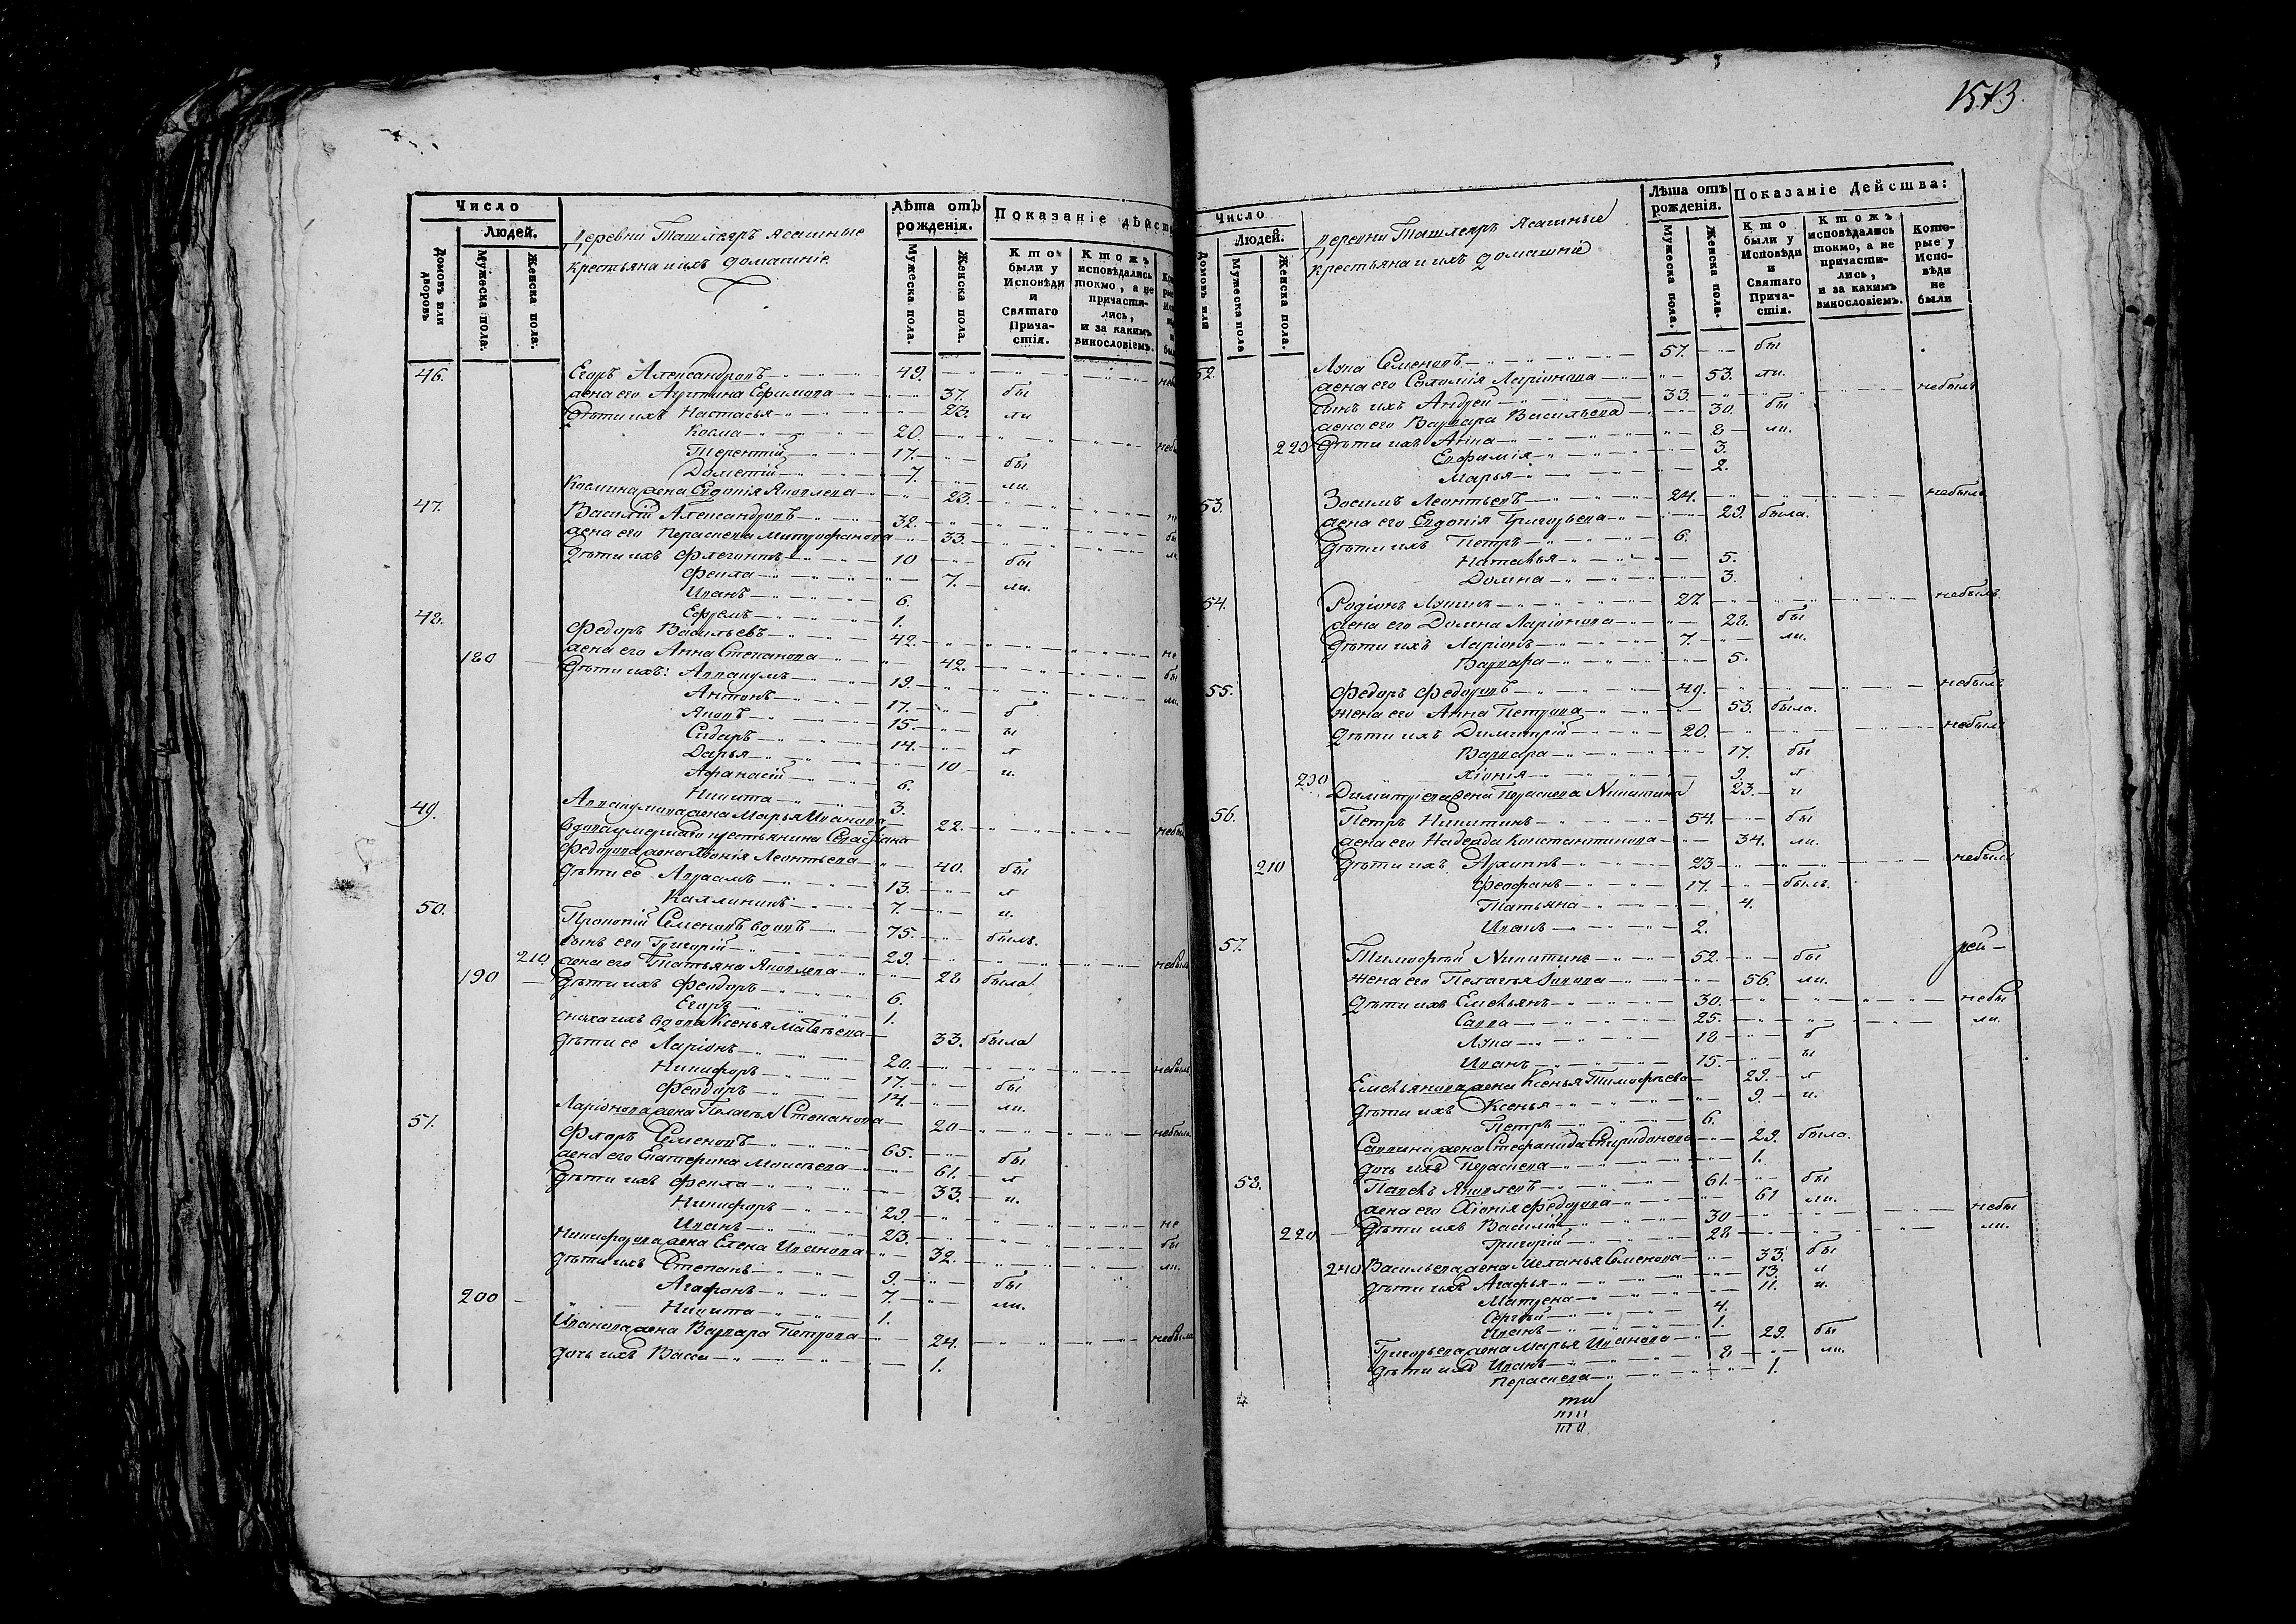 1513
Число
Людей.
Домовъ или дворовъ
Мужеска пола.
Женска пола.
Деревни Ташлеяръ ясашные
крестьяна и ихъ домашніе
Лѣта отъ рожденія.
Мужеска пола.
Женска пола.
Показаніе дѣйст
Кто были у Исповѣди и Святаго Прича-стія.
Ктожъ исповѣдались токмо, а не причасти-лись, и за какимъ винословіемъ.
46. Егоръ Александровъ 49.
жена его Ефимова 37. бы
дѣти ихъ Настасья 23. ли
Косма 20.
Терентій 17. бы
Дометій 7. ли.
Космина жена Евдокія Яковлева 23.
47. Василій Александровъ 32.
жена его Параскева Митрофанова 33. бы
дѣти ихъ Флегонтъ 10 бы ли.
Фекла 7. ли.
Иванъ 6.
Ефремъ 1.
48. Федоръ Васильевъ 42. не
жена его Анна Степанова 42. бы
180 дѣти ихъ: Аввакумъ 19. ли.
Антонъ 17. б
Яковъ 15. ы
Сидоръ 14. л
Дарья 10 и.
Афанасій 6.
Никита 3.
Аввакумова жена Марья Иванова 22.
49. вдова умершаго крестьянина
Федорова жена Хіонія Леонтьева 40. бы
дѣти ее Авраамъ 13. л
Каллиникъ 7. и.
50. Прокопій Семеновъ вдовъ 75. былъ.
сынъ его Григорій 29. небылъ
210 жена его Татьяна Яковлева 28 была
190 дѣти ихъ Феодоръ 6.
Егоръ 1.
сноха ихъ вдова Ксенья Матвѣева 33. была
дѣти ее Ларіонъ 20. небылъ
Никифоръ 17. бы
Феодоръ 14. ли.
Ларіонова жена Пелагья Степанова 20 небыла
51. Флоръ Семеновъ 65. бы
жена его Екатерина Моисѣева 61. л
дѣти ихъ Фекла 33. и.
Никифоръ 29. не
Иванъ 23. бы
Никифорова жена Елена Иванова 32. ли.
дѣти ихъ Степанъ 9. бы
Агафонъ 7. ли.
200 Никита 1.
Иванова жена Варвара Петрова 24.
дочь ихъ Васса 1.
Число
Людей.
Домовъ или
Мужеска пола
Женска пола.
Деревни Ташлеяръ Ясашные
крестьяна и ихъ домашніе
Лѣта отъ рожденія.
Мужеска пола.
Женска пола.
Показаніе Действа:
Кто были у Исповѣди и Святаго Прича-стія.
Ктожъ исповѣдались токмо, а не причасти-лись, и за какимъ винословіемъ.
Кото-рые у Испо-вѣди не были
52. Лука Семеновъ 57. бы
жена его Соломія Ларіонова 53. ли.
сынъ ихъ Андрей 33. небылъ
жена его Варвара Васильева 30. бы
220 дѣти ихъ Анна 8 ли.
Евфимія 3.
Марья 2.
53. Зосимъ Леонтьевъ 24. небылъ
жена его Евдокія Григорьева 29. была.
дѣти ихъ Петръ 6.
Наталья 5.
Домна 3.
54. Родіонъ Лукинъ 27. небылъ
жена его Домна Ларіонова 28. бы
дѣти ихъ Ларіонъ 7. ли.
Варвара 5.
55. Федоръ Федоровъ 49. небылъ
жена его Анна Петрова 53. была.
дѣти ихъ Димитрій 20. небылъ
Варвара 17. бы
Хіонія 9. л
230 Димитріева жена Параскева Никитина 23. и
56. Петръ Никитинъ 54. бы
жена его Надежда Константинова 34. ли.
210 дѣти ихъ Архиппъ 23 небылъ
Феофанъ 17. былъ.
Татьяна 4.
Иванъ 2.
57. Тимофей Никитинъ 52. бы
жена его Пелагья 56. ли.
дѣти ихъ Емельянъ 30. небы
Савва 25. ли.
Лука 18. б
Иванъ 15. ы
Емельянова жена Ксенья Тимофеева 29. л
дѣти ихъ Ксенья 9. и.
Петръ 6.
Саввина жена Стефанида Спиридонова 29. была.
дочь ихъ Параскева 1.
58. Павелъ Яковлевъ 61. бы
жена его Хіонія Федорова 61 ли.
220 дѣти ихъ Василій 30 небы
Григорій 28 ли.
240 Васильева жена Меланья Семенова 33. бы
дѣти ихъ Агафья 13. л
Матрена 11. и.
Сергѣй 4.
Иванъ 1.
Григорьева жена Марья Иванова 29. бы
дѣти ихъ Иванъ 8 ли.
Параскева 1.